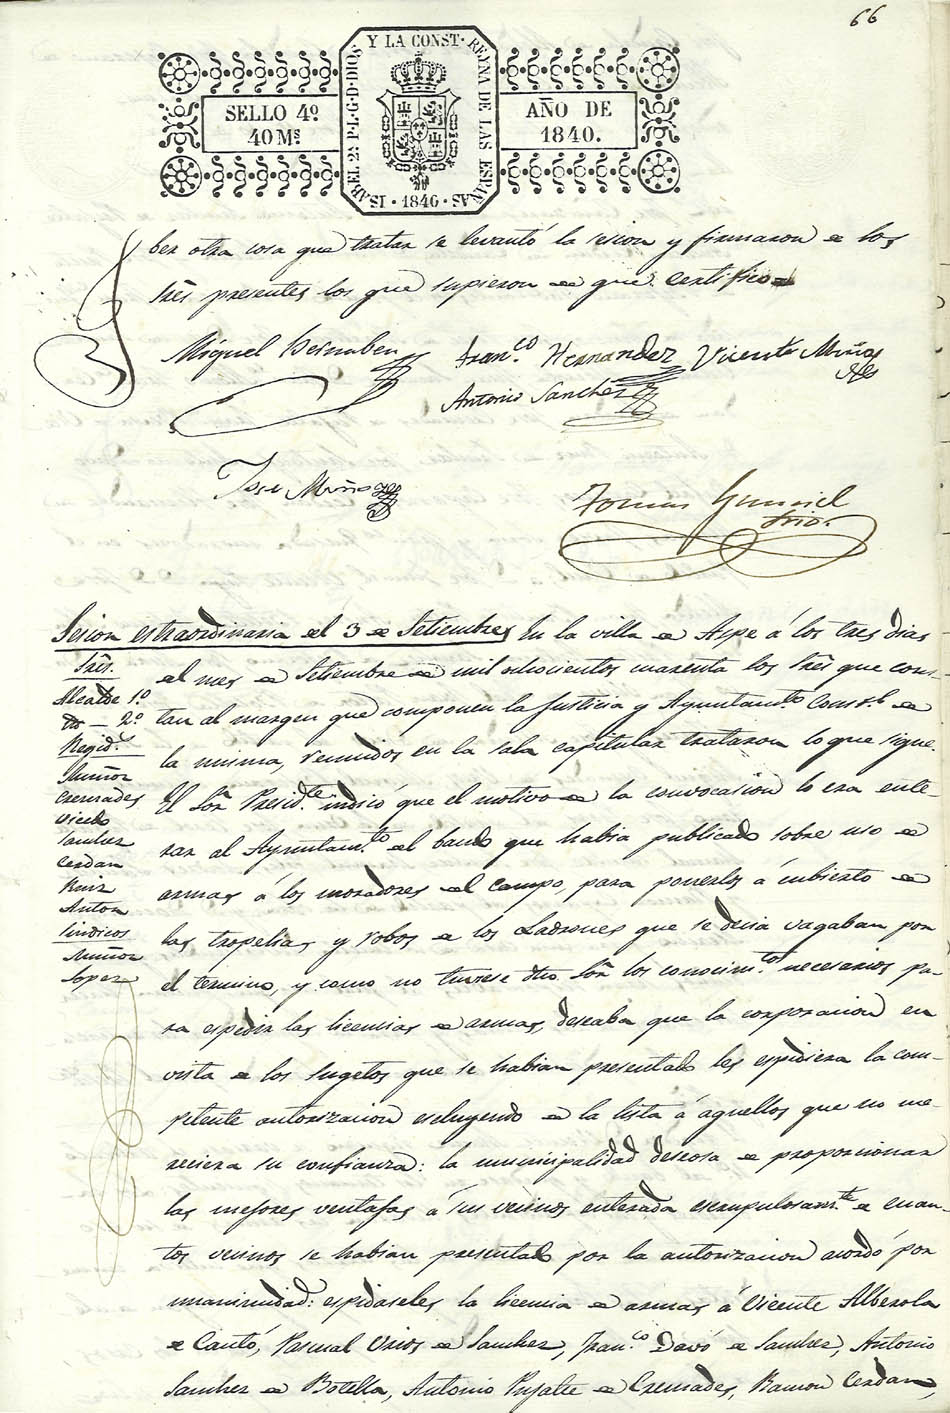 66
SELLO 4º
40 Mˢ
ISABEL 2ª P.L.G.D.DIOS Y LA CONST. REYNA DE LAS ESPAÑAS
· 1840 ·
AÑO DE
1840.
ber otra cosa que tratar se levantó la sesion y firmaron de los
Sres presentes los que supieron de que certifico=
Miguel Bernabeu
Franco Hernandez Vicente Muñoz
Antonio Sanchez
Jose Muñoz
Tomas
Srio.
Sesion estraordinaria del 3 de Setiembre, En la villa de Aspe á los tres dias
del mes de Setiembre de mil ochocientos cuarenta los Sres que cons-
tan al margen que componen la Justicia y Ayuntamto Constl de
la misma, reunidos en la sala capitular trataron lo que sigue.
El Sor Presidte indicó que el motivo de la convocacion lo era ente-
rar al Ayuntamto del bando que habia publicado sobre uso de
armas á los moradores del campo, para ponerlos á cubierto de
las tropelias y robos de los Ladrones que se decia vagaban por
el termino, y como no tuviese dho Sor los conocimtos necesarios pa-
ra espedir las licencias de armas, deseaba que la corporacion en
vista de los sugetos que se habian presentado les espidiera la com-
petente autorizacion escluyendo de la lista á aquellos que no me-
reciera su confianza: la municipalidad deseosa de proporcionar
las mejores ventajas á sus vecinos enterada escrupulosamte de cuan-
tos vecinos se habian presentado por la autorizacion acordó por
unanimidad: espidaseles la licencia de armas á Vicente Alberola
de Cantó, Pascual Urios de Sanchez, Franco Davó de Sanchez, Antonio
Sanchez de Botella, Antonio Pujalte de Cremades, Ramon Cerdan,
Sres.
Alcalde 1º
dto — 2º
Regid.s
Muñoz
Cremades
Vicedo
Sanchez
Cerdan
Ruiz
Anton
Sindicos
Muñoz
Lopez